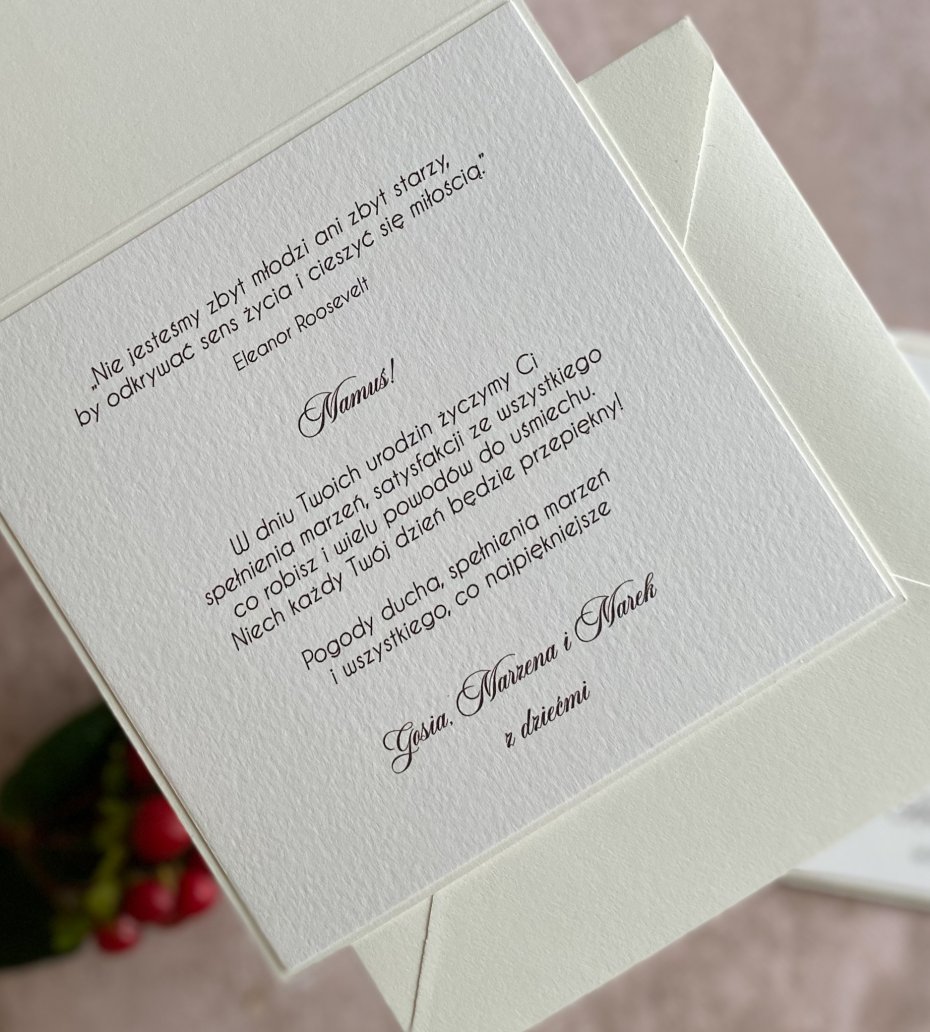 „Nie jesteśmy zbyt młodzi ani zbyt starzy,
by odkrywać sens życia i cieszyć się miłością."
Eleanor Roosevelt
Mamuś!
W dniu Twoich urodzin życzymy Ci
spełnienia marzeń, satysfakcji ze wszystkiego
co robisz i wielu powodów do uśmiechu.
Niech każdy Twój dzień będzie przepiękny!
Pogody ducha, spełnienia marzeń
i wszystkiego, co najpiękniejsze
Gosia, Marzena i Marek
z dziećmi